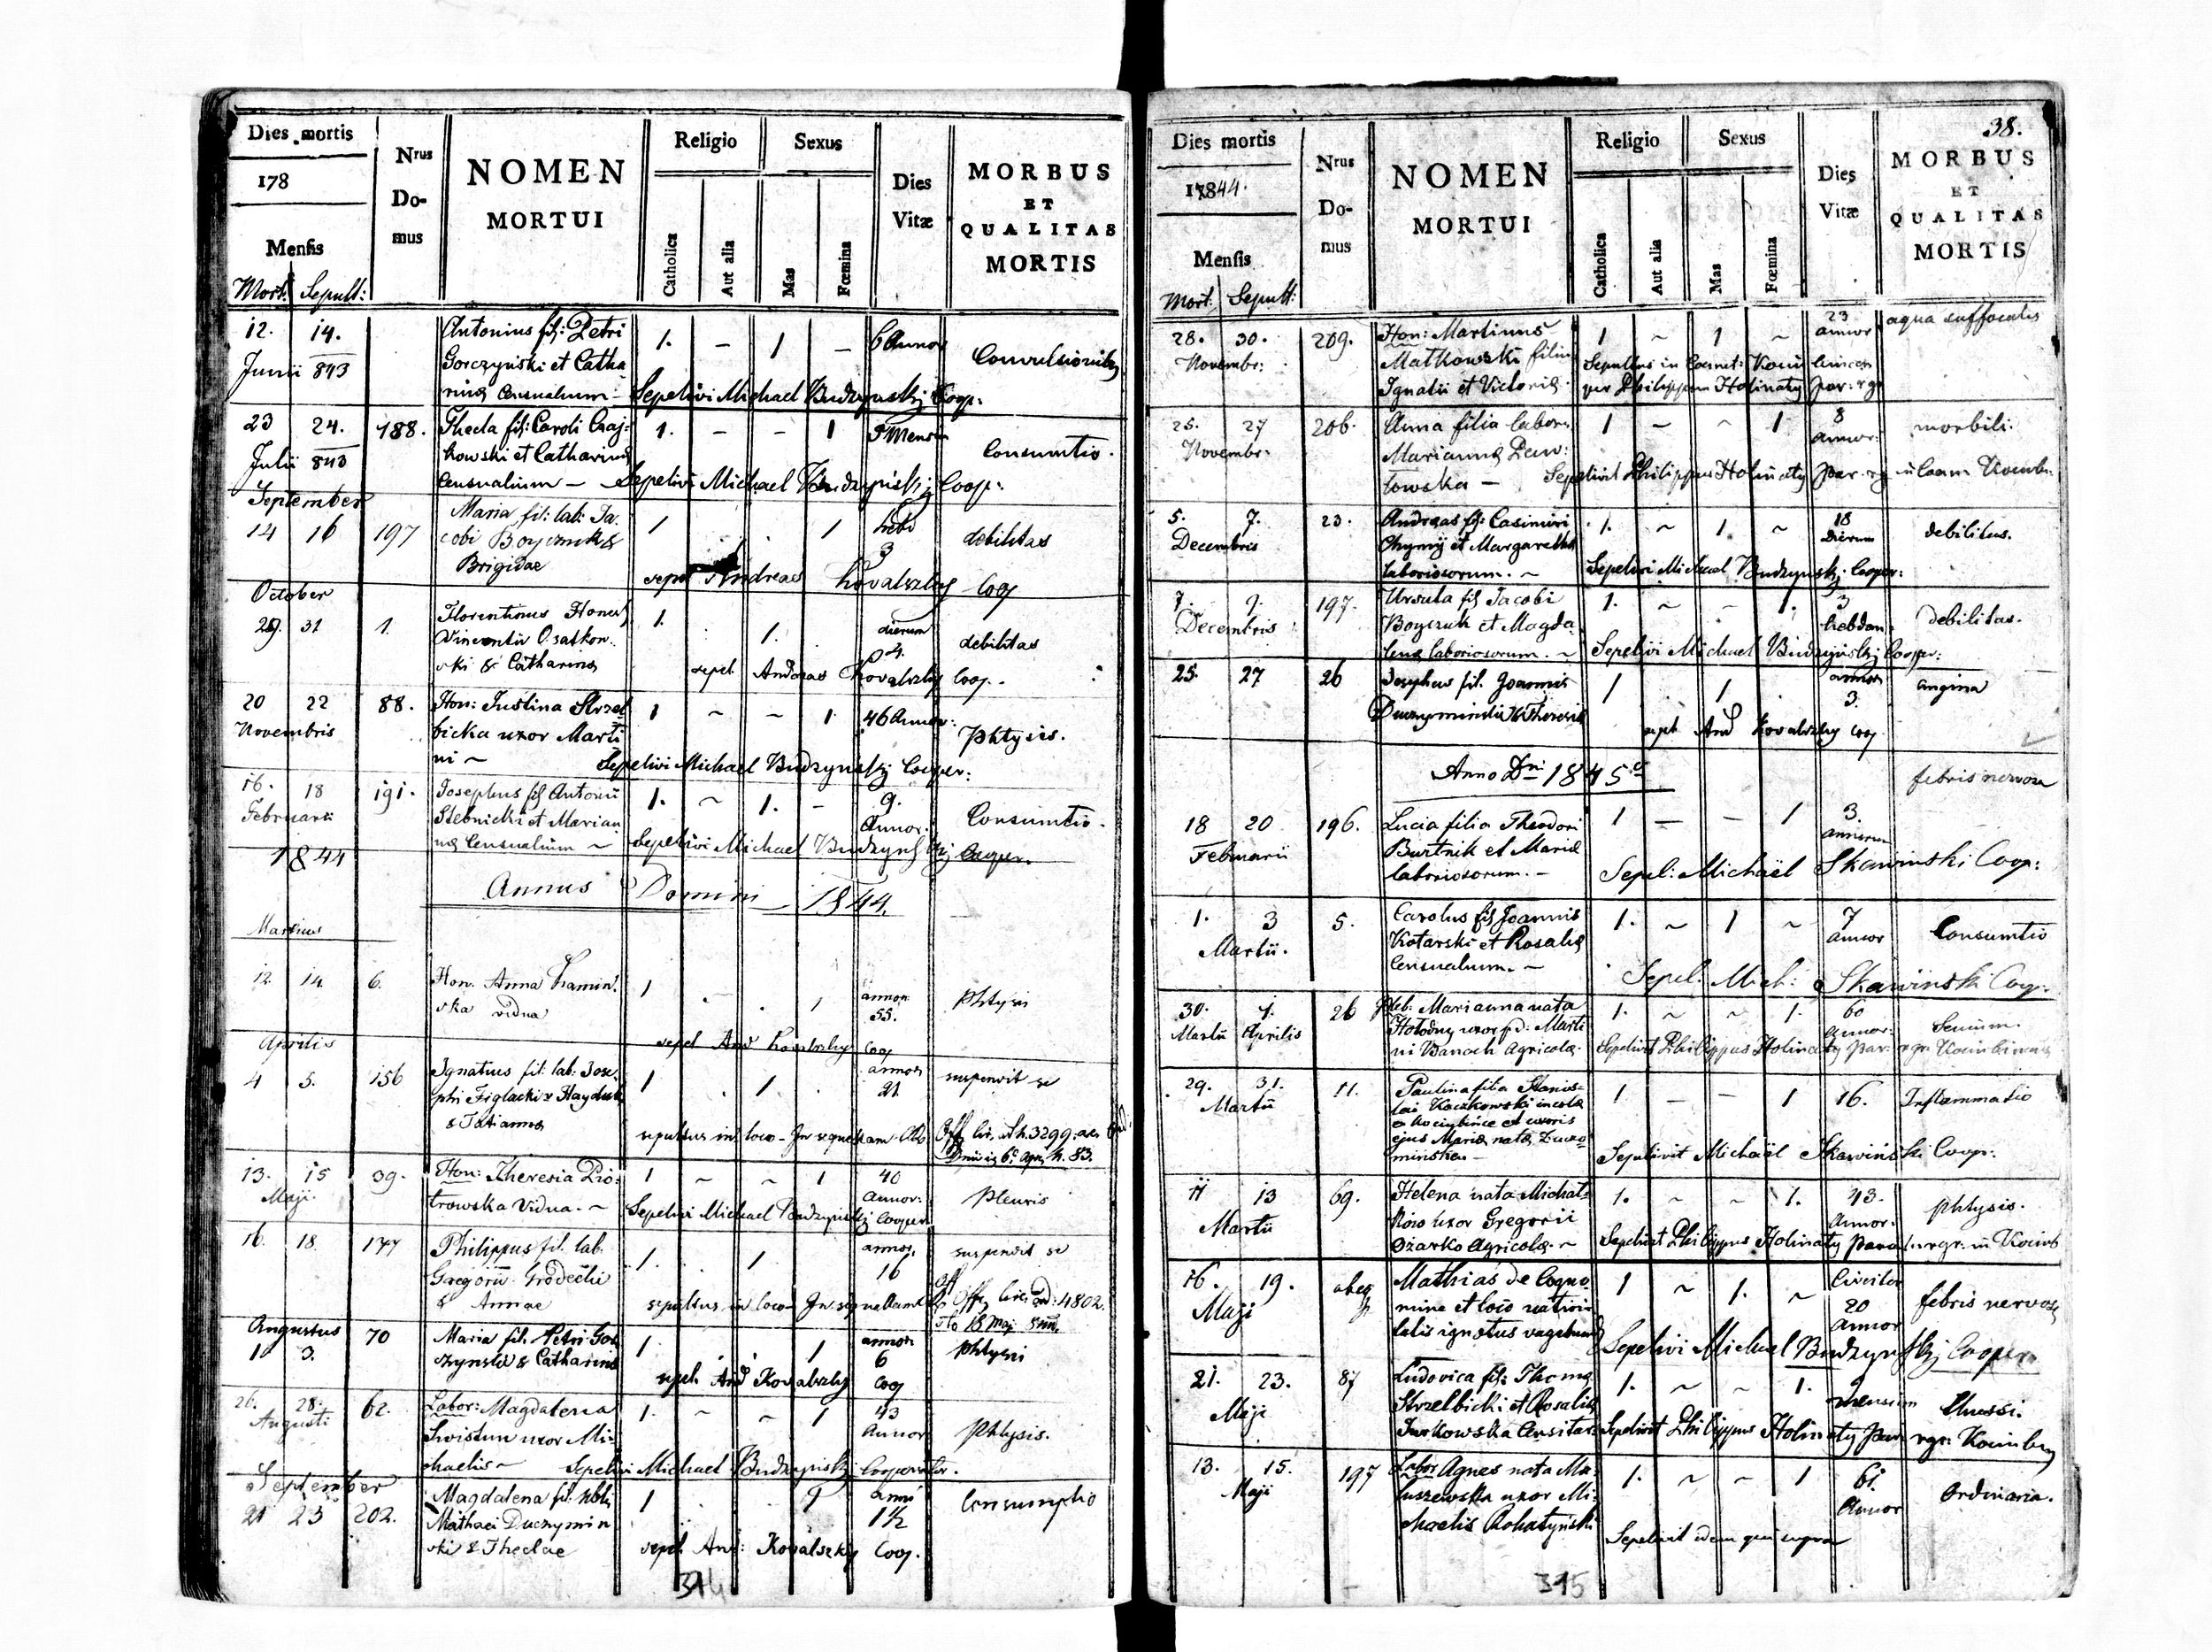 Dies mortis
178
Mensis
Mort. Sepult:
Nrus Domus
NOMEN
MORTUI
Religio
Catholica
Aut alia
Sexus
Mas
Fœmina
Dies
Vitæ
MORBUS
ET
QUALITAS
MORTIS
12. 14. Antonius fil: Petri 1. – 1 – 6 Annor Convulsionib
Junii 843 Gorczynski et Catha
rinæ Censualium – Sepelivi Michael Budzynskj Coop:
23 24. 188. Thecla fil: Caroli Czaj- 1. – – 1 5 Mens
Julii 843 kowski et Catharinæ Consumtio.
Censualium – Sepelivi Michael Budzynskj Coop:
September
14 16 197 Maria fil: lab: Ja- 1 1 hebd 3 debilitas
cobi Boyczuk &
Brigidae sepel Andreas Kovalszky Coop
October
29. 31 1. Florentinus Honor 1. 1. dierum 4. debilitas
Vincentii Osatkow
ski & Catharina sepel Andreas Kovalszky Coop.
20 22 88. Hon: Justina Strzel- 1 ~ ~ 1 46 Annor: Phtysis.
Novembris bicka uxor Marti
ni ~ Sepelivi Michael Budzynskj Cooper:
16. 18 191. Josephus fil Antonii 1. ~ 1. – 9. Annor. Consumtio.
Februarii Stebnicki et Marian
næ Censualium ~ Sepelivi Michael Budzynskj Cooper.
1844
Annus Domini 1844.
Martius
12 14 6. Hon. Anna Kamin 1 1 annor 55. Phtysis
ska vidua
sepel And Kovalszky Coop
Aprilis
4 5. 156 Ignatius fil: lab: Jose- 1 1 annor 21 suspendit se
phi Figlacki & Hayduk
& Tatianna sepultus in loco –
13. 15 39. Hon: Theresia Pio- 1 ~ ~ 1 40 Annor: Pleuris
Maji trowska Vidua. ~ Sepelivi Michael Budzynskj Cooper
16. 18 177 Philippus fil. lab. 1. 1 annor. 16 suspendit se
Gregorii Grodecki
& Annae sepultus in loco –
Augustus
1 3. 70 Maria fil. Petri Gor 1. 1 annor 6 Phtysis
czynski & Catharina sepel And Kovalszky Coop
26. 28. 62. Labor: Magdalena 1. ~ ~ 1 43 Annor Phtysis.
Augusti Swistun uxor Mi-
chaelis ~ Sepelivi Michael Budzynskj Cooperator.
September
21 23 202. Magdalena fil: Nobi 1 1 anni 1½ Consumptio
Mathaei Duczymin
ski & Theclae sepel And: Kovalszky Coop.
314
38.
Dies mortis
17844.
Mensis
Mort. Sepult:
Nrus Domus
NOMEN
MORTUI
Religio
Catholica
Aut alia
Sexus
Mas
Fœmina
Dies
Vitæ
MORBUS
ET
QUALITAS
MORTIS
28. 30. 209. Hon: Martinus 1 ~ 1 ~ 23 annor aqua suffocatus
Novembr: Matkowski filius
Ignatii et Victoriæ per Philippum Holinaty par: rgr
25. 27 206. Anna filia labor: 1 – ~ 1 8 annor: morbili.
Novembr. Mariannæ Paw-
lowska – Sepelivit Philippus Holinaty par: rgr
5. 7. 23. Andreas fil: Casimiri 1. ~ 1. ~ 18 Dierum debilitas.
Decembris Chymij et Margarethæ
laboriosorum. ~ Sepelivi Michael Budzynskj Cooper:
7. 9. 197. Ursula fil Jacobi 1. ~ ~ 1. 3 hebdom: debilitas.
Decembris Boyczuk et Magda-
lenæ laboriosorum. ~ Sepelivi Michael Budzynskj Cooper:
25. 27 26 Josephus fil. Joannis 1 1 annor 3. angina
Duczyminski & Theresiæ
sepel And Kovalszky Coop
Anno Dni 1845
18 20 196. Lucia filia Theodori 1 – – 1 3. annorum febris nervosa
Februarii Burtnik et Mariæ
laboriosorum. – Sepel: Michäel Skawinski Coop:
1. 3 5. Carolus fil Joannis 1. ~ 1 ~ 7 annor Consumtio
Martii. Kotarski et Rosaliæ
Censualium. – Sepel: Mich: Skawinski Coop.
30. 1. 26 Marianna nata 1. ~ ~ 1. 60 annor: Senium.
Martii Aprilis Hołodny uxor pd: Marti
ni Banach Agricolæ. Sepelivit Philippus Holinaty par: rgr:
29. 31. 11. Paulina filia Stanis- 1 – – 1 16. Inflammatio
Martii lai Koczkowski incolæ
e Kociubince et uxoris
ejus Mariæ natæ
Sepelivit Michäel Skawinski Coop:
11 13 69. Helena nata Michal- 1. ~ ~ 1. 43. Annor. phtysis.
Martii kow uxor Gregorii
Ozarko Agricolæ. ~ Sepelivit Philippus Holinaty
16. 19. Mathias de Cogno- 1 ~ 1. ~ Circiter 20 Annor febris nervosa
Maji mine et loco nativi-
tatis ignotus vagabund Sepelivi Michael Budzynskj Cooper.
21. 23. 87 Ludovica fil: Thomæ 1. ~ ~ 1. mensium tussi.
Maji Strzelbicki et Rosaliæ
Turkowska Sepelivit Philippus Holinaty par rgr:
13. 15. 197 Labor Agnes nata Ma- 1. ~ ~ 1 61 Annor Ordinaria.
Maji tuszewska uxor Mi-
chaelis Rohatyński Sepelivit idem qui supra
315